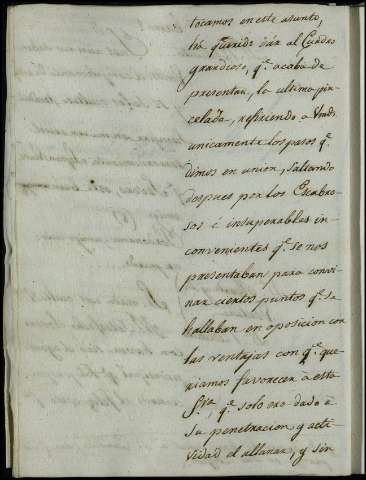 tocamos en este asunto,
ha querido dár al Cuadro
grandioso, q.e acaba de
presentar, la ultima pin-
celada, refiriendo a Vmds.
unicamente los pasos q.e
dimos en union, saltando
despues por los Escabro-
sos é insuperables in-
convenientes q.e se nos
presentaban para convi-
nar ciertos puntos q.e se
hallaban en oposicion con
las ventajas con q.e que-
riamos favorecer á esta
q.e solo era dado a
su penetracion, y acti-
vidad el allanar, y sin